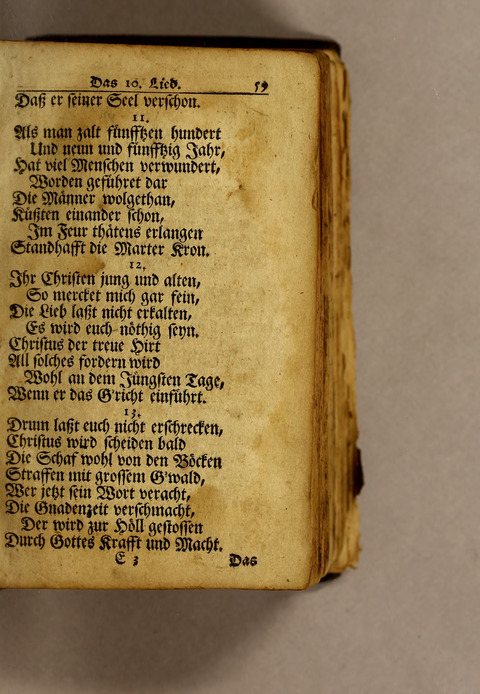 Das 10. Lied. 59
Daß er seiner Seel verschon.
11.
Als man zalt fünfftzen hundert
Und neun und fünfftzig Jahr,
Hat viel Menschen verwundert,
Worden geführet dar
Die Männer wolgethan,
Küßten einander schon,
Im Feur thätens erlangen
Standhafft die Marter Kron.
12.
Ihr Christen jung und alten,
So mercket mich gar fein,
Die Lieb laßt nicht erkalten,
Es wird euch nöthig seyn.
Christus der treue Hirt
All solches fordern wird
Wohl an dem Jüngsten Tage,
Wenn er das G'richt einführt.
13.
Drum laßt euch nicht erschrecken,
Christus wird scheiden bald
Die Schaf wohl von den Böcken
Straffen mit grossem G'wald,
Wer jetzt sein Wort veracht,
Die Gnadenzeit verschmacht,
Der wird zur Höll gestossen
Durch Gottes Krafft und Macht.
E 3 Das